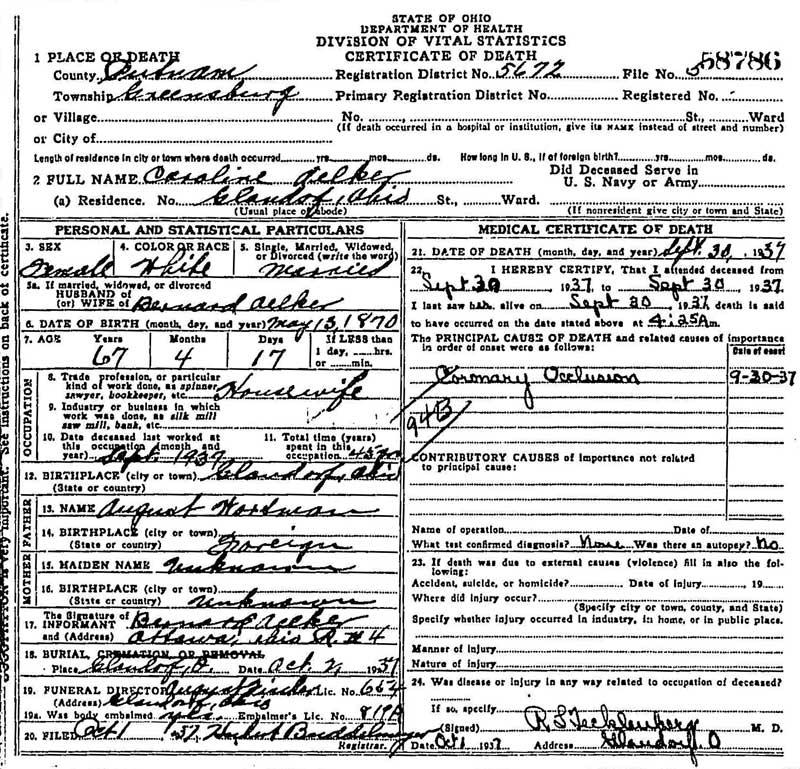 STATE OF OHIO
DEPARTMENT OF HEALTH
DIVISION OF VITAL STATISTICS
CERTIFICATE OF DEATH
1 PLACE OF DEATH
County Putnam Registration District No. 5672 File No. 58786
Township Greensburg Primary Registration District No. Registered No. -
or Village No. St., Ward
(If death occurred in a hospital or institution, give its NAME instead of street and number)
or City of
Length of residence in city or town where death occurred yrs. mos. ds. How long in U. S., if of foreign birth? yrs. mos. ds.
2 FULL NAME Caroline Aelker Did Deceased Serve in U. S. Navy or Army
(a) Residence. No. Glandorf, Ohio St., Ward.
(Usual place of abode) (If nonresident give city or town and State)
PERSONAL AND STATISTICAL PARTICULARS
3. SEX Female
4. COLOR OR RACE White
5. Single, Married, Widowed, or Divorced (write the word) Married
5a. If married, widowed, or divorced
HUSBAND of
(or) WIFE of Bernard Aelker
6. DATE OF BIRTH (month, day, and year) May 13, 1870
7. AGE Years 67 Months 4 Days 17 If LESS than 1 day, hrs. or min.
OCCUPATION
8. Trade, profession, or particular kind of work done, as spinner, sawyer, bookkeeper, etc. Housewife
9. Industry or business in which work was done, as silk mill saw mill, bank, etc.
10. Date deceased last worked at this occupation (month and year) Sept. 1937
11. Total time (years) spent in this occupation 45
12. BIRTHPLACE (city or town) Glandorf, Ohio
(State or country)
FATHER
13. NAME August
14. BIRTHPLACE (city or town)
(State or country) Foreign
MOTHER
15. MAIDEN NAME Unknown
16. BIRTHPLACE (city or town)
(State or country) Unknown
17. The Signature of INFORMANT Bernard Aelker
and (Address) Ottawa, Ohio R. #4
18. BURIAL, CREMATION OR REMOVAL
Place Glandorf, O. Date Oct. 2, 1937
19. FUNERAL DIRECTOR August Lic. No.
(Address) Glandorf, Ohio
19a. Was body embalmed yes. Embalmer's Lic. No. 819A
20. FILED Oct 1 1937 Registrar.
MEDICAL CERTIFICATE OF DEATH
21. DATE OF DEATH (month, day, and year) Sept. 30, 1937
22. I HEREBY CERTIFY, That I attended deceased from
Sept 30, 1937, to Sept 30, 1937
I last saw her alive on Sept 30, 1937, death is said
to have occurred on the date stated above at 4:25 Am.
The PRINCIPAL CAUSE OF DEATH and related causes of importance in order of onset were as follows: Date of onset
Coronary Occlusion 9-30-37
94B
CONTRIBUTORY CAUSES of importance not related to principal cause:
Name of operation Date of
What test confirmed diagnosis? None Was there an autopsy? No
23. If death was due to external causes (violence) fill in also the following:
Accident, suicide, or homicide? Date of injury, 19
Where did injury occur?
(Specify city or town, county, and State)
Specify whether injury occurred in industry, in home, or in public place.
Manner of injury
Nature of injury
24. Was disease or injury in any way related to occupation of deceased?
If so, specify
(Signed) R. S. Tecklenberg M. D.
Date Oct 1 1937 Address Glandorf, O
See instructions on back of certificate.